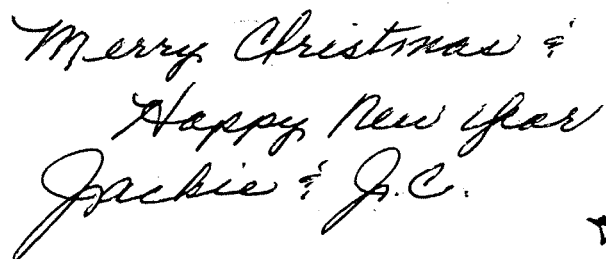 Merry Christmas &
Happy New Year
Jackie & J.C.